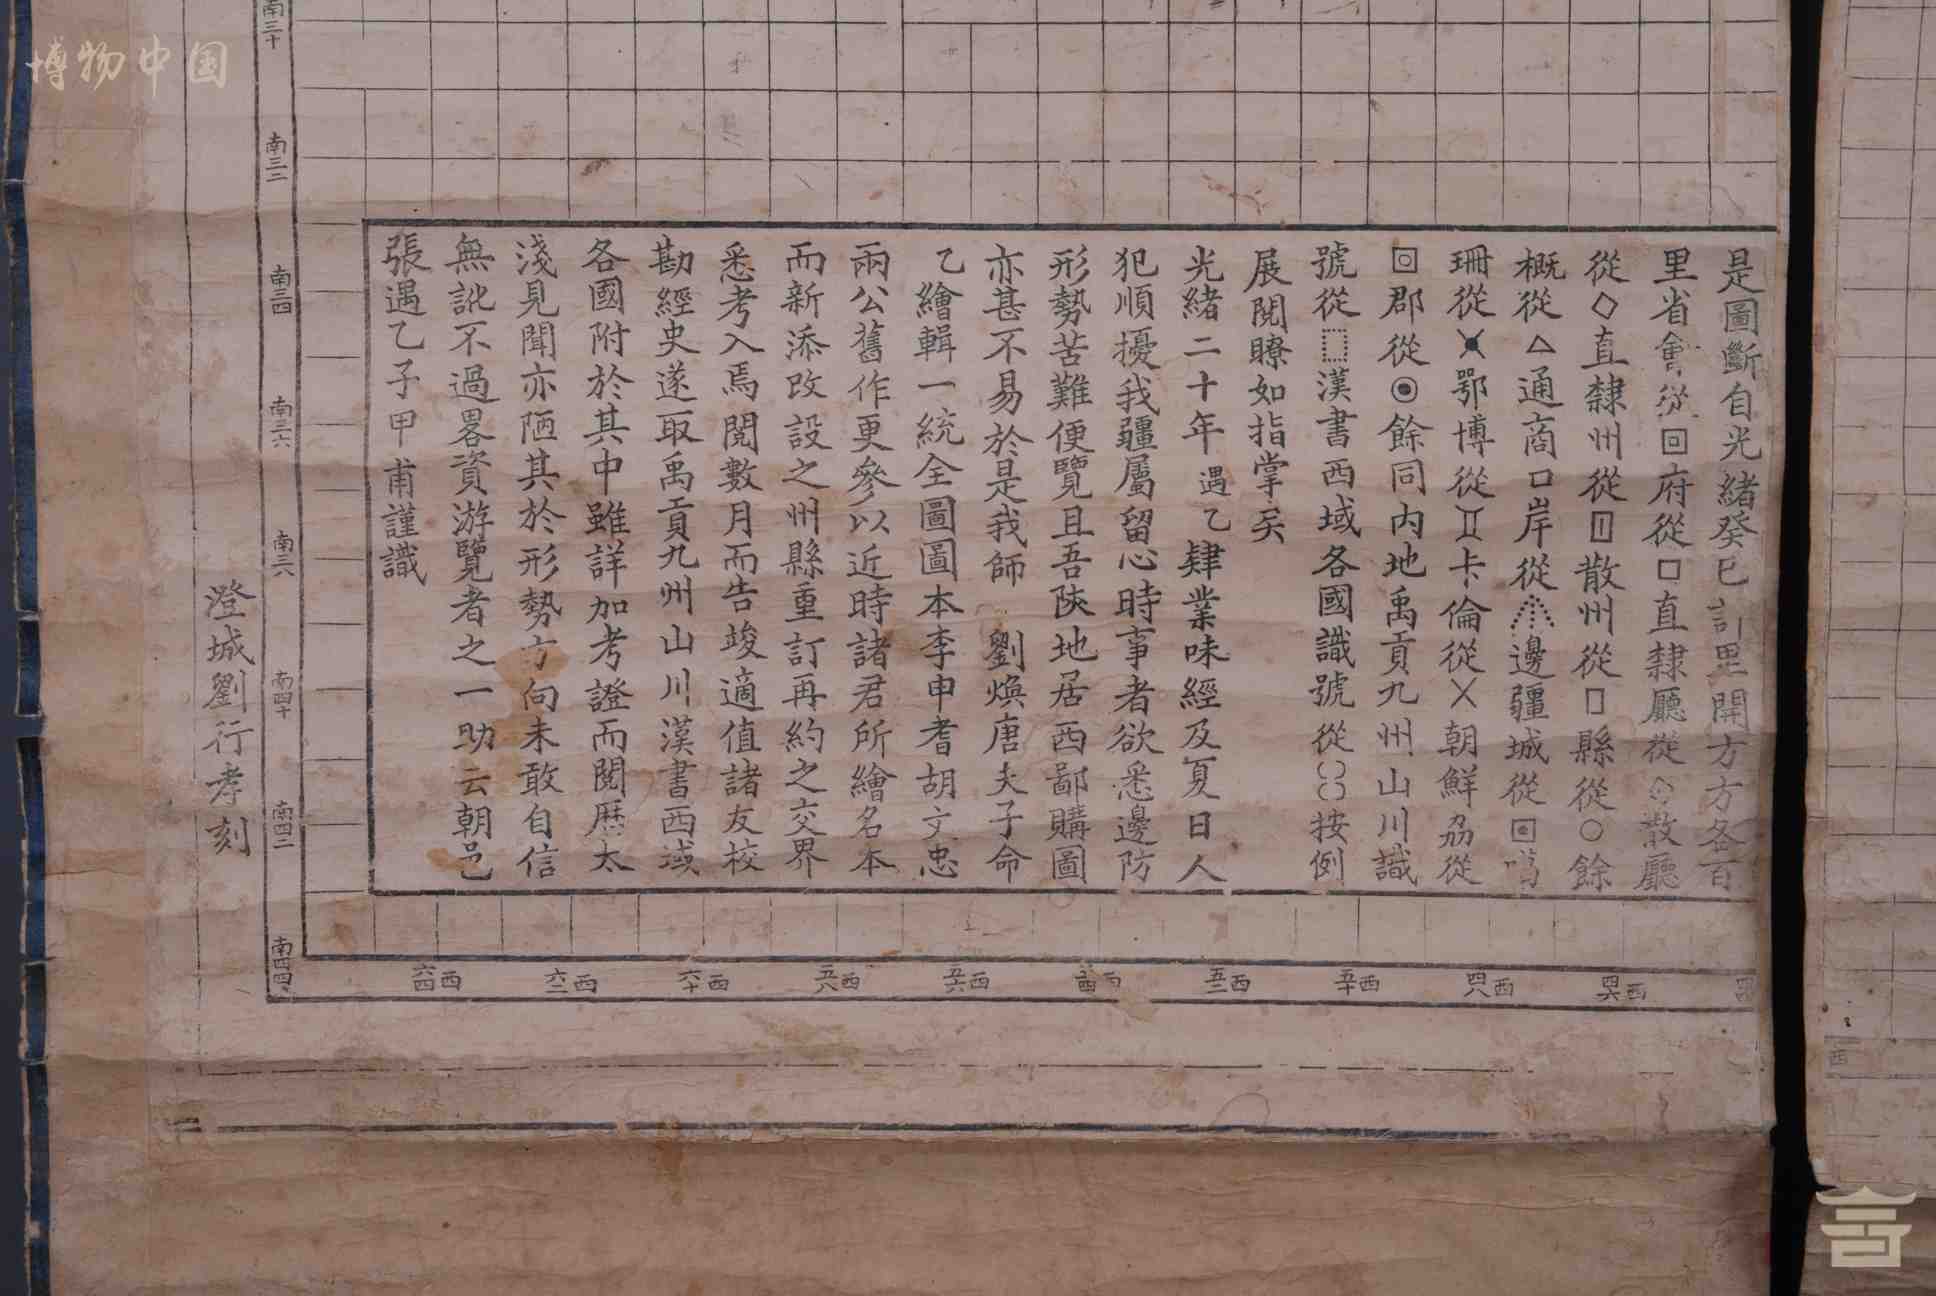 博物中国
是圖斷自光緒癸巳計里開方方各百
里省會從回府從口直隸廳從◇散廳
從◇直隸州從▯散州從▯縣從○餘
概從△通商口岸從邊疆城從回鳴
珊從鄂博從卡倫從╳朝鮮刕從
回郡從◉餘同內地禹貢九州山川識
號從漢書西域各國識號從按例
展閱瞭如指掌矣
光緒二十年遇乙肄業味經及夏日人
犯順擾我疆屬留心時事者欲悉邊防
形勢苦難便覽且吾陝地居西鄙購圖
亦甚不易於是我師 劉煥唐夫子命
乙繪輯一統全圖圖本李申耆胡文忠
兩公舊作更參以近時諸君所繪名本
而新添改設之州縣重訂再約之交界
悉考入焉閱數月而告竣適值諸友校
勘經史遂取禹貢九州山川漢書西域
各國附於其中雖詳加考證而閱歷太
淺見聞亦陋其於形勢方向未敢自信
無訛不過畧資游覽者之一助云朝邑
張遇乙子甲甫謹識
澄城劉行孝刻
南三十
南三二
南三四
南三六
南三八
南四十
南四二
南四四
西四六
西四八
西五十
西五二
西五四
西五六
西五八
西六十
西六二
西六四
西